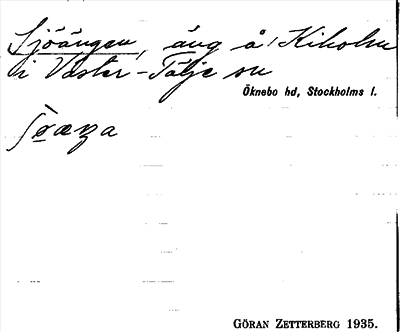 Sjöängen, äng å Kiholm
i Väster-Tälje sn
Öknebo hd, Stockholms l.
GÖRAN ZETTERBERG 1935.